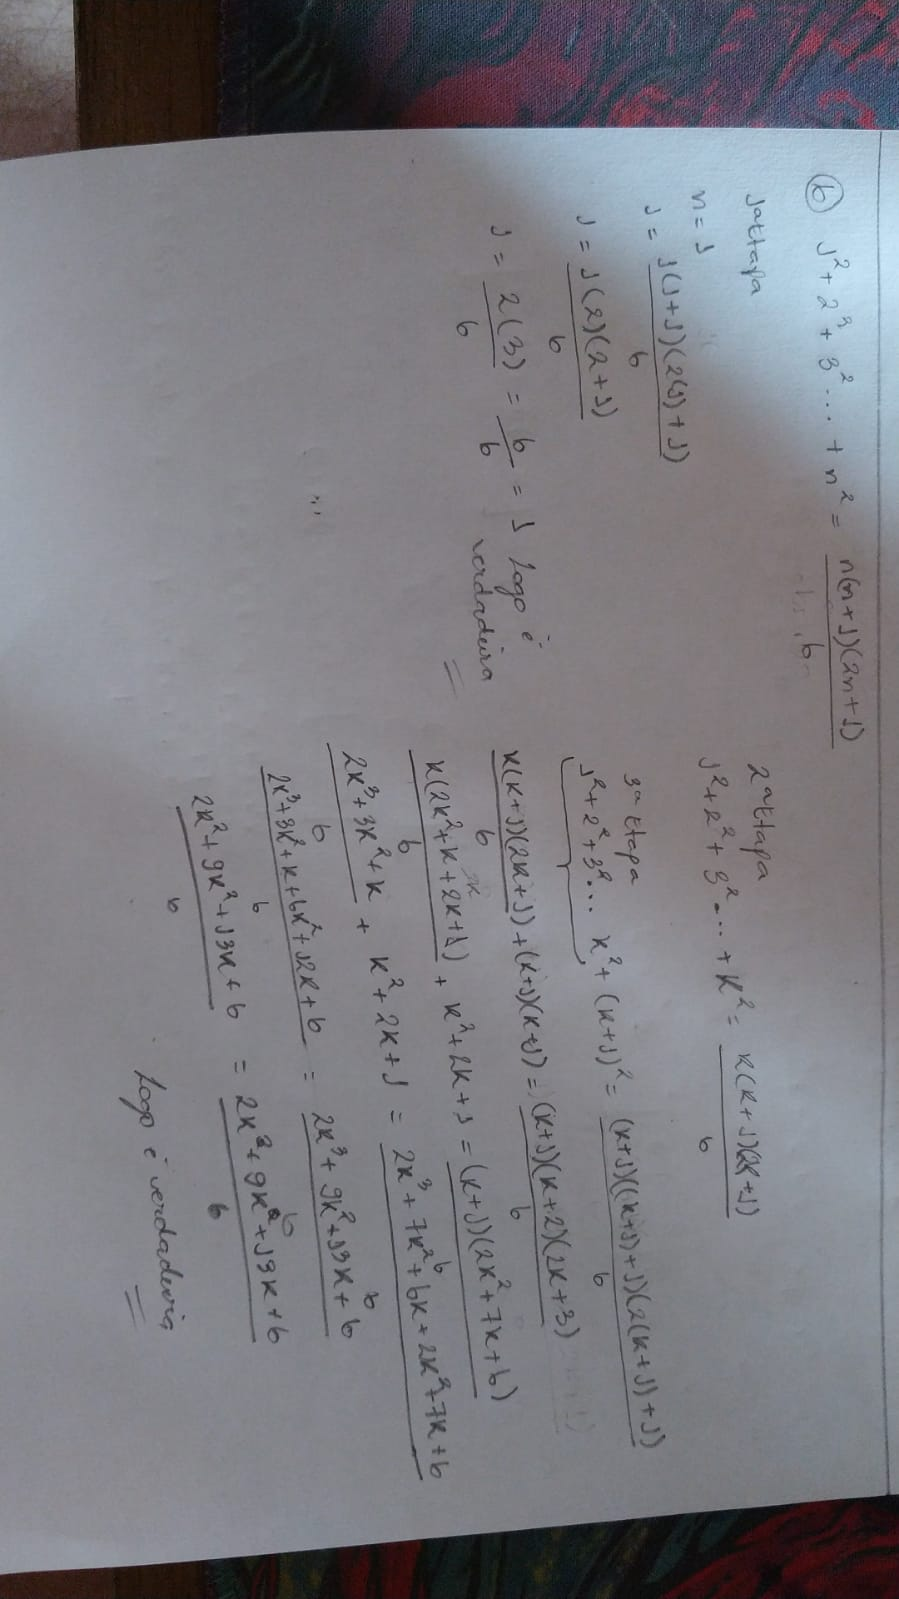 b) 1² + 2² + 3² ... + n² = n(n+1)(2n+1) / 6
1ª etapa
n = 1
1 = 1(1+1)(2(1)+1) / 6
1 = 1(2)(2+1) / 6
1 = 2(3) / 6 = 6/6 = 1 Logo é
verdadeira
2ª etapa
1² + 2² + 3² ... + k² = k(k+1)(2k+1) / 6
3ª etapa
1² + 2² + 3² ... k² + (k+1)² = (k+1)((k+1)+1)(2(k+1)+1) / 6
k(k+1)(2k+1) / 6 + (k+1)(k+1) = (k+1)(k+2)(2k+3) / 6
k(2k²+k+2k+1) / 6 + k²+2k+1 = (k+1)(2k²+7k+6) / 6
2k³+3k²+k / 6 + k²+2k+1 = 2k³+7k²+6k+2k²+7k+6 / 6
2k³+3k²+k+6k²+12k+6 / 6 = 2k³+9k²+13k+6 / 6
2k²+9k²+13k+6 / 6 = 2k²+9k²+13k+6 / 6
Logo é verdadeira